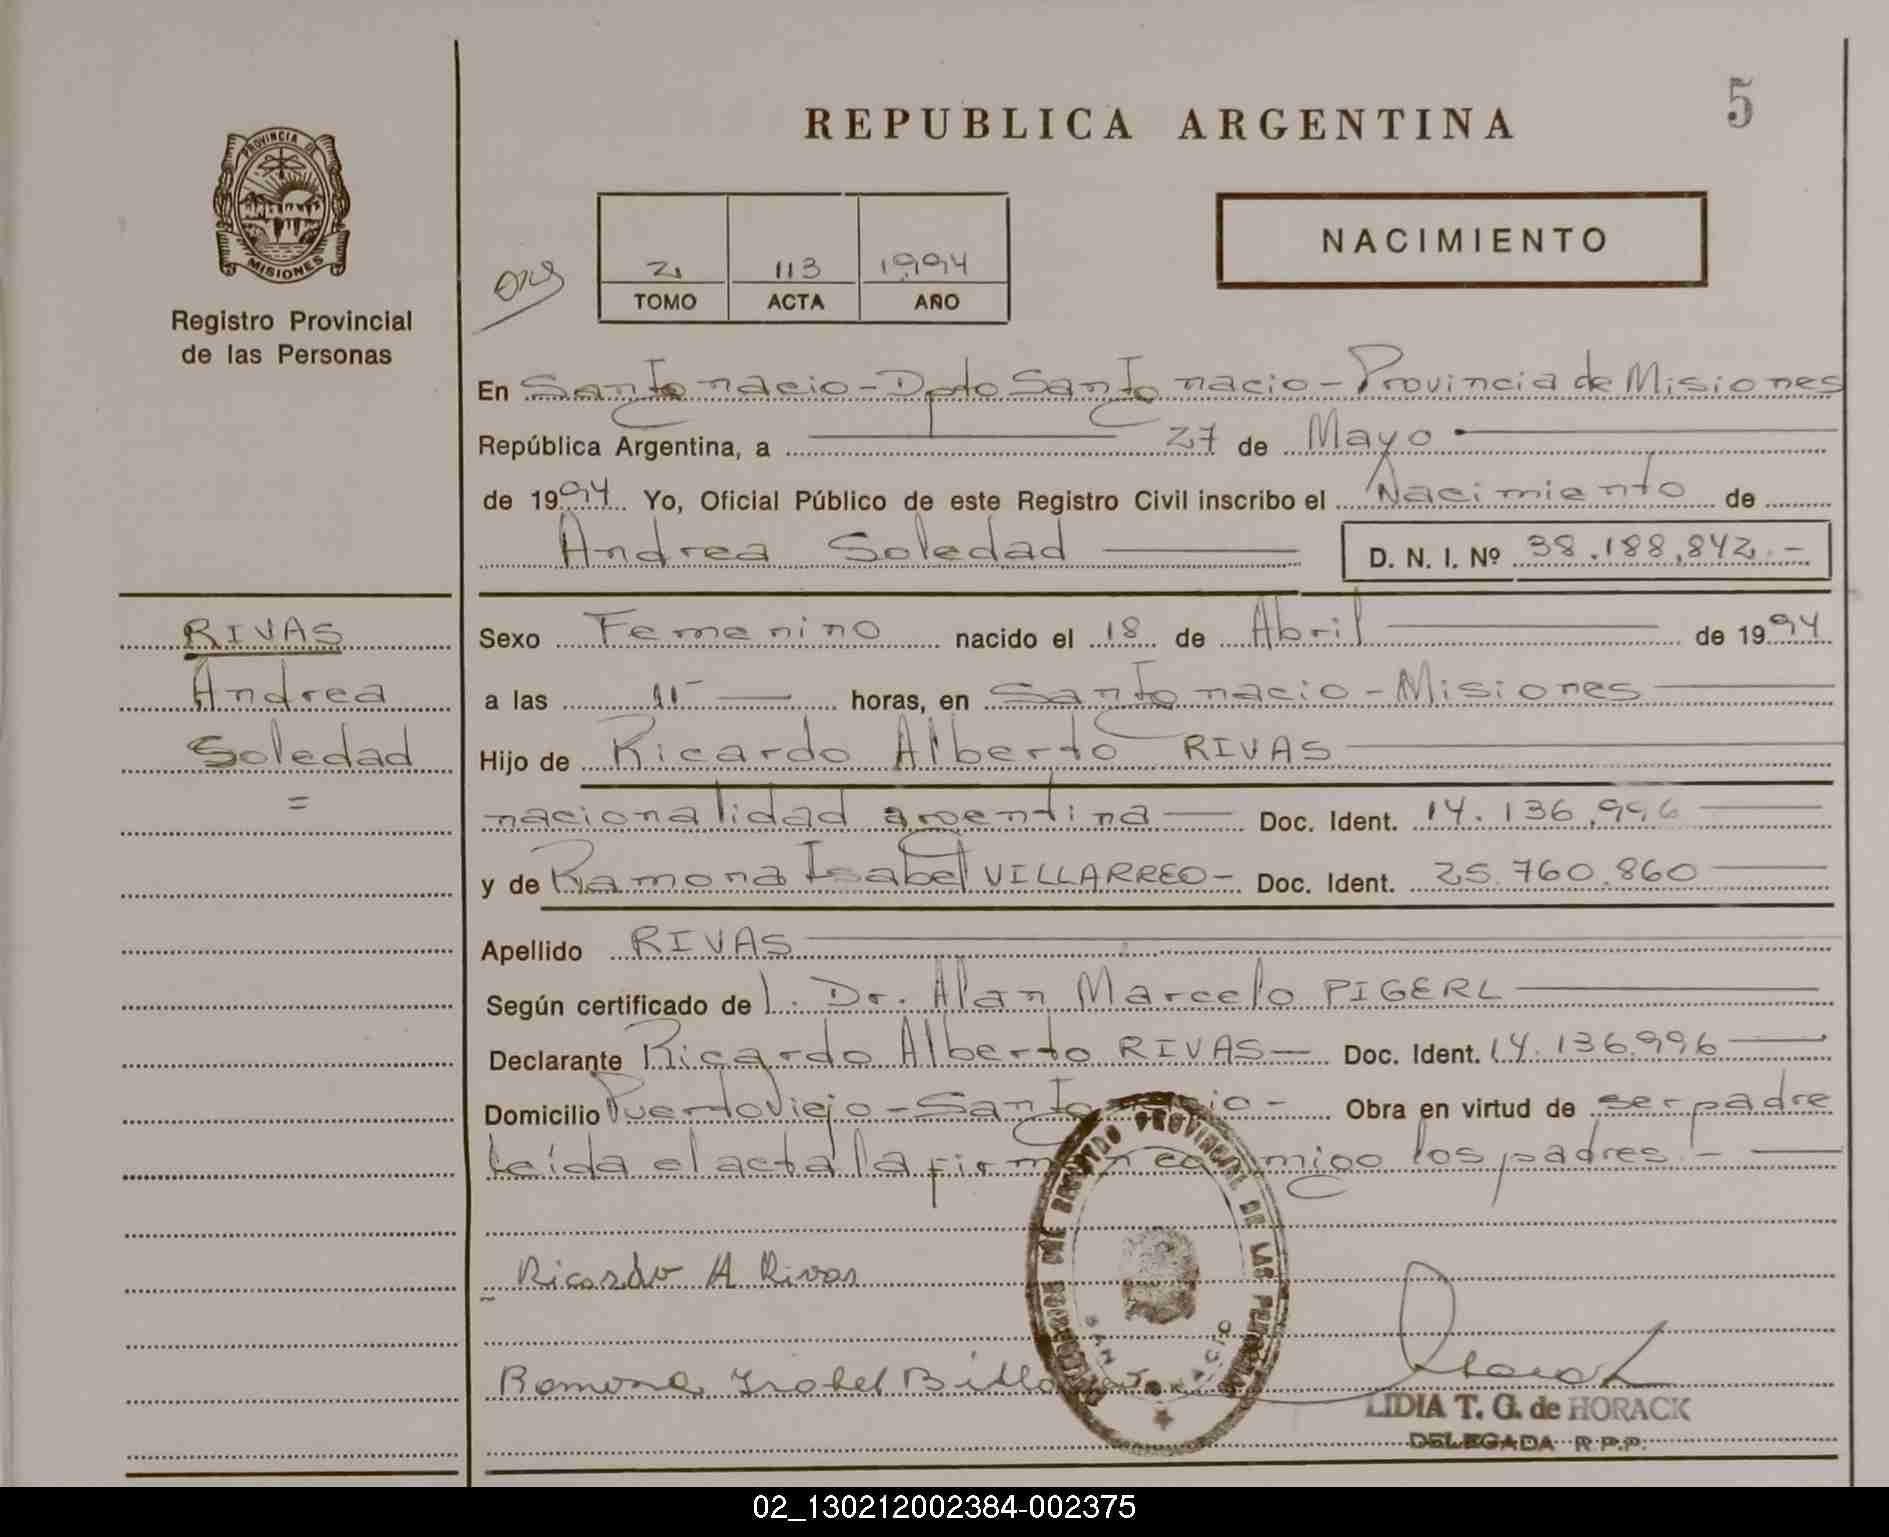 5
REPUBLICA ARGENTINA
PROVINCIA DE
MISIONES
Registro Provincial
de las Personas
2 113 1994
TOMO ACTA AÑO
NACIMIENTO
En San Ignacio - Dpto San Ignacio - Provincia de Misiones
República Argentina, a 27 de Mayo
de 1994 Yo, Oficial Público de este Registro Civil inscribo el Nacimiento de
Andrea Soledad D. N. I. Nº 38.188.842.-
RIVAS
Andrea
Soledad
=
Sexo Femenino nacido el 18 de Abril de 1994
a las 11 horas, en San Ignacio - Misiones
Hijo de Ricardo Alberto RIVAS
nacionalidad argentina Doc. Ident. 14.136.996
y de Ramona Isabel VILLARREO- Doc. Ident. 25.760.860
Apellido RIVAS
Según certificado de l. Dr. Alan Marcelo PIGERL
Declarante Ricardo Alberto RIVAS Doc. Ident. 14.136.996
Domicilio Puerto Viejo - San Ignacio - Obra en virtud de ser padre
Leída el acta la firman conmigo los padres.-
Ricardo A Rivas
Ramona Isabel
PROVINCIAL DE LAS PERSONAS
LIDIA T. G. de HORACK
DELEGADA R.P.P.
02_130212002384-002375